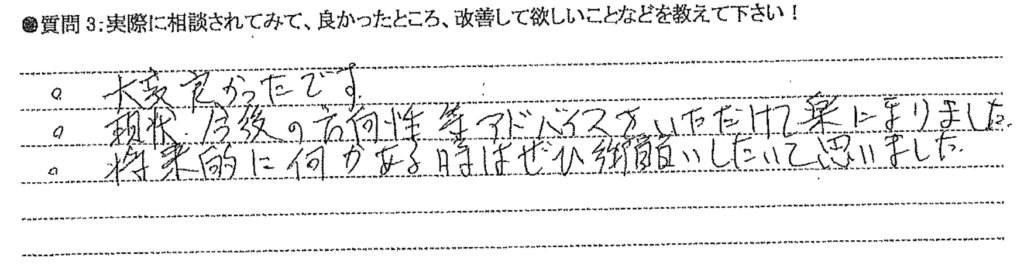 ●質問3:実際に相談されてみて、良かったところ、改善して欲しいことなどを教えて下さい!
。大変良かったです。
。現状、今後の方向性等アドバイスをいただけて楽になりました。
。将来的に何かある時はぜひ御願いしたいて思いました。